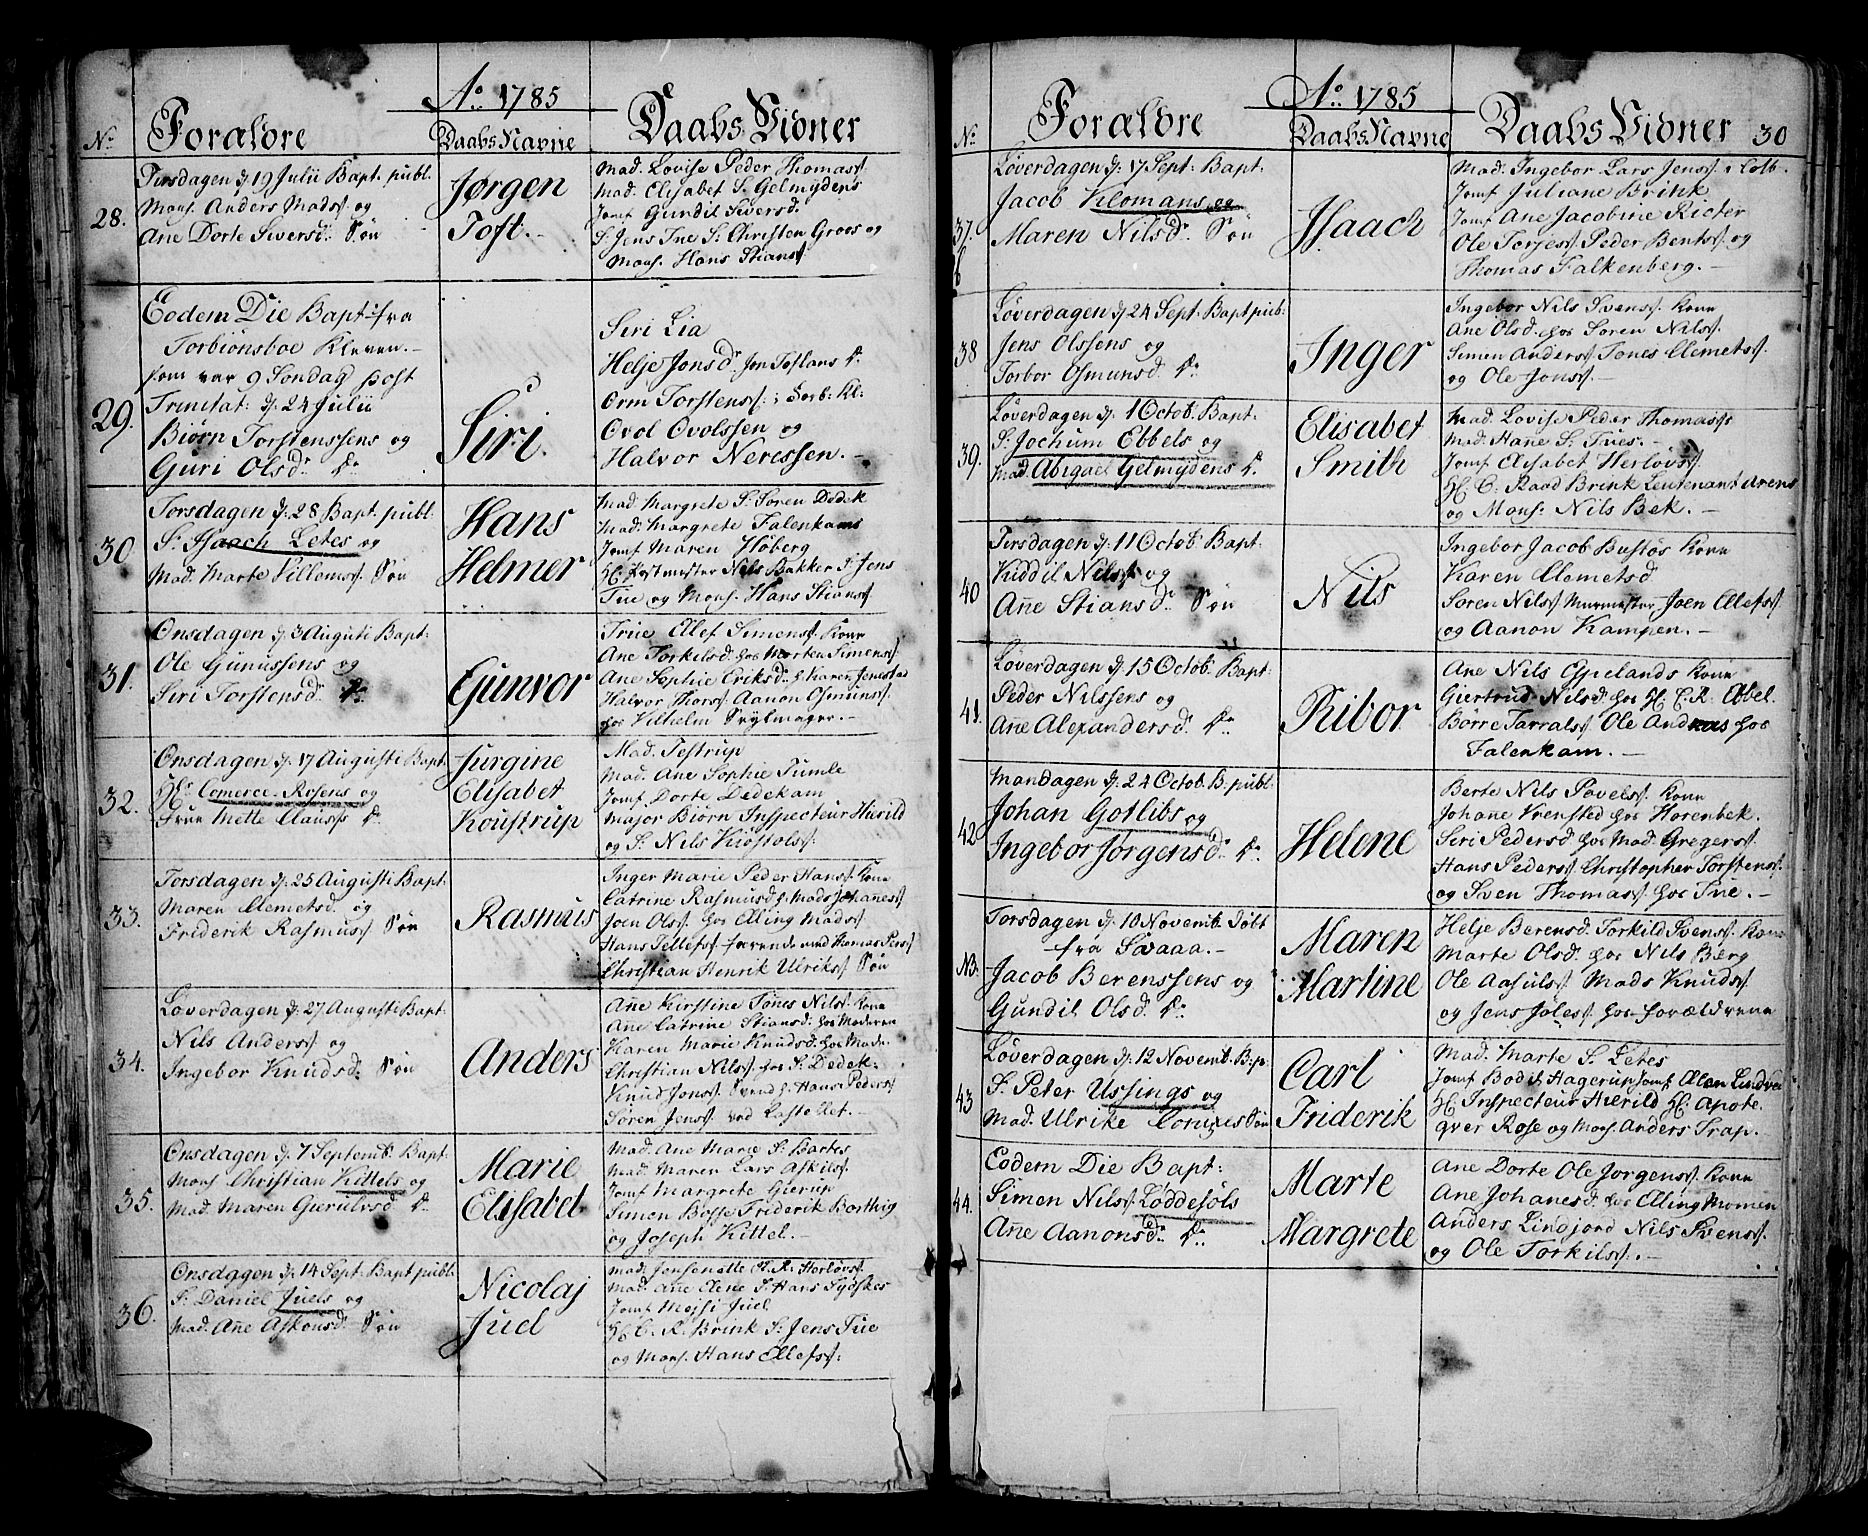 Ao. 1785
No. Forældre Daabs Navne Daabs Vidner
28.
Tirsdagen d. 19 Julii Bapt. publ.
Mons. Anders Madss. og
Ane Dorte Siversd. Søn
Jørgen
Toft.
Mad. Lovise Peder Thomass.
Mad. Elisabet S. Gelmÿdens
Jomf. Gundil Siversd.
S. Jens Tue S. Christen Groos og
Mons. Hans Stianss.
29.
Eodem Die Bapt. fra
Torbiønsboe Kleven.
som var 9 Søndag post
Trinitat: d. 24 Julii
Biørn Torstenssens og
Guri Olsdr. Dr.
Siri.
Siri Lia
Helje Jonsdr. Jon Toflans Dr.
Orm Torstenss. i Torb: Kl:
Ovol Ovolssen og
Halvor Neressen.
30
Torsdagen d. 28 Bapt. publ.
S. Isaach Letes og
Mad. Marte Villomss. Søn
Hans
Helmer
Mad. Margrete S. Søren Dedek
Mad. Margrete Falenkams
Jomf. Maren Høberg
H. Postmester Nils Bakker S. Jens
Tue og Mons. Hans Stianss.
31.
Onsdagen d. 3 Augusti Bapt:
Ole Gunussens og
Siri Torstensdr. Dr.
Gunvor
True Elef Simonss. Kone
Ane Torkilsd. hos Morten Simenss.
Ane Sophie Eriksd. h. Karen Jenestad
Halvor Thorss. Aanon Osmunss.
hos Vilhelm Seÿlmager.
32.
Onsdagen d. 17 Augusti Bapt.
Hr. Comerce-Rosens og
Frue Mette Clauss. Dr.
Jurgine
Elisabet
Koustrup
Mad. Testrup
Mad. Ane Sophie Tumle
Jomf. Dorte Dedekam
Major Biørn Inspecteur Hierild
og S. Nils Kiøstolss.
33.
Torsdagen d. 25 Augusti Bapt:
Maren Clemetsd. og
Friderik Rasmuss. Søn
Rasmus
Inger Marie Peder Hanss. Kone
Catrine Rasmusd. h. Mads Johaness.
Joen Olss. hos Elling Madss.
Hans Tellefss. farende med Thomas Perss.
Christian Henrik Ulrikss. Søn
34.
Løverdagen d. 27 Augusti Bapt:
Nils Anderss. og
Ingebor Knudsd. Søn
Anders
Ane Kirstine Tønes Nilss. Kone
Ane Catrine Stiansd. hos Moderen
Karen Marie Knudsd. hos Mode.
Christian Nilss. hos S. Dedek.
Knud Jonss. Svend h. Hans Pederss.
Søren Jenss. ved Castellet.
35.
Onsdagen d. 7 Septemb. Bapt:
Mons. Christian Kittels og
Mad. Maren Gierulvsd. Dr.
Marie
Elisabet
Mad. Ane Marie S. Bartes
Mad. Maren Lars Askilss.
Jomf. Margrete Gierup
Simon Bosse Friderik Borthvig
og Joseph Kittel.
36.
Onsdagen d. 14 Sept. Bapt publ.
S. Daniel Juels og
Mad. Ane Askonsd. Søn
Nicolaj
Juel
Mad. Jensenette C. R. Herlovs.
Mad. Ane Elene S. Hans Sÿdskes
Jomf. Mojsi Juel
H. C. R. Brink S. Jens Tue
og Mons. Hans Ellefss.
Ao. 1785
No. Forældre Daabs Navne Daabs Vidner 30
37.
Løverdagen d. 17 Sept. Bapt.
Jacob Klomans og
Maren Nilsdr. Søn
Isaach
Mad. Ingebor Lars Jenss. i Colb.
Jomf. Juliane Brink
Jomf. Ane Jacobine Ricter
Ole Terjess. Peder Bentss. og
Thomas Falkenberg.
38
Løverdagen d. 24 Sept. Bapt pub:
Jens Olssens og
Torbor Osmunsd. Dr.
Inger
Ingebor Nils Svenss. Kone
Ane Olsd. hos Søren Nilss.
Simen Anderss. Tones Clemetss.
og Ole Jonss.
39.
Løverdagen d. 1 Octob. Bapt.
S. Jochum Ebbels og
Mad. Abigael Gelmÿdens Dr.
Elisabet
Smith
Mad. Lovise Peder Thomass.
Mad. Hane S. Tues.
Jomf. Elisabet Herlovs.
H. C. Raad Brink Leutenant Arens
og Mons. Nils Bek.
40
Tirsdagen d. 11 Octob. Bapt.
Kiddil Nilss. og
Ane Stiansdr. Søn
Nils
Ingebor Jacob Bustøs Kone
Karen Clemetsd.
Søren Nilss. Murmester Joen Elefss.
og Aanon Kampen.
41.
Løverdagen d. 15 Octob. Bapt
Peder Nilssens og
Ane Alexandersd. Dr.
Ribor
Ane Nils Opelands Kone
Giertrud Nilsd. hos H. C. R. Ebbel
Børre Tarralss. Ole Andreas hos
Falenkam.
42
Mandagen d. 24 Octob. B. publ:
Johan Gotlibs og
Ingebor Jørgensdr. Dr.
Helene
Berte Nils Povelss. Kone
Johane Vrensted hos Horenbek.
Siri Pedersd. hos Mad. Gregerss.
Hans Pederss. Christopher Torstenss.
og Sven Thomass. hos Tue.
NB.
Torsdagen d. 10 Novemb. Døbt
fra Svaaa.
Jacob Berenssens og
Gundil Olsd. Dr.
Maren
Martine
Helje Berensd. Torkild Svenss. Kone
Marte Olsd. hos Nils Berg
Ole Aasulss. Mads Knudss.
og Jens Joless. hos Forældrene
43
Løverdagen d. 12 Novemb. B. p.
S. Peter Ussings og
Mad. Ulrike Søn
Carl
Friderik
Mad. Marte S. Letes
Jomf. Bodil Hagerup Jomf. Elen
H. Inspecteur Hierild H. Apote-
qver Rose og Mons. Anders Trap.
44.
Eodem Die Bapt:
Simen Nilss. Løddesøls
Ane Aanonsdr. Dr.
Marte
Margrete
Ane Dorte Ole Jorgenss. Kone
Ane Johanesd. hos Elling Momen
Anders Lingjord Nils Svenss.
og Ole Torkilss.